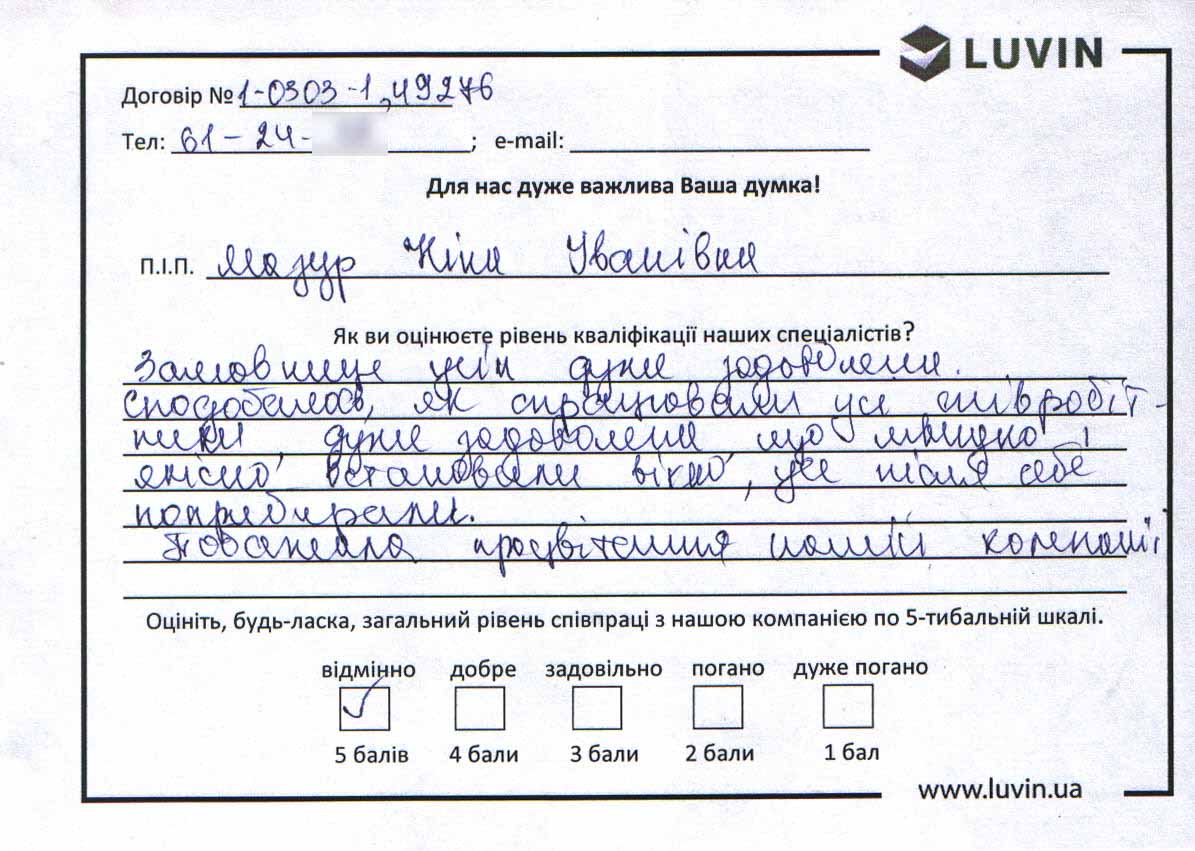 LUVIN
Договір № 1-0303-1, 49276
Тел: 61-24- ; e-mail:
Для нас дуже важлива Ваша думка!
П.І.П. Мазур Ніна Іванівна
Як ви оцінюєте рівень кваліфікації наших спеціалістів?
дуже задоволені.
сподобалось, як спрацювали усі співробіт-
ники, дуже задоволені що швидко і
якісно встановили вікно, усе після себе
поприбирали.
процвітання компанії
Оцініть, будь-ласка, загальний рівень співпраці з нашою компанією по 5-тибальній шкалі.
відмінно добре задовільно погано дуже погано
5 балів 4 бали 3 бали 2 бали 1 бал
www.luvin.ua